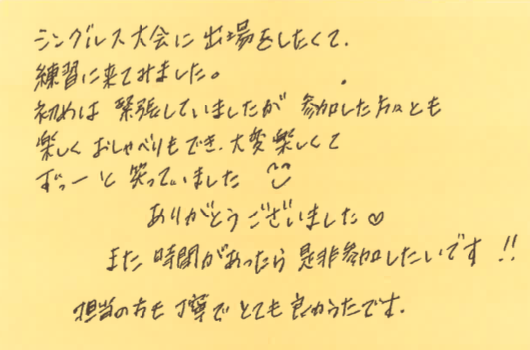 シングルス大会に出場をしたくて、
練習に来てみました。
初めは緊張していましたが参加した方々とも
楽しくおしゃべりもでき、大変楽しくて
ずっーと笑っていました
ありがとうございました♡
また時間があったら是非参加したいです!!
担当の方も丁寧でとても良かったです。